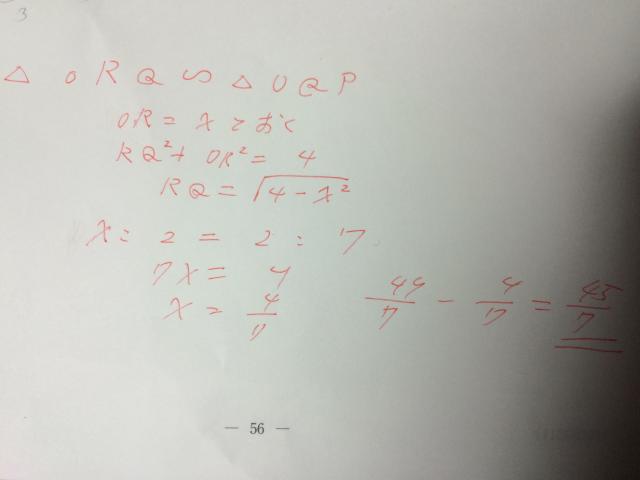 3
△ORQ∽△OQP
OR = xとおく
RQ²+ OR² = 4
RQ = √4-x²
x : 2 = 2 : 7
7x = 4
x = 4/7
49/7 - 4/7 = 45/7
— 56 —